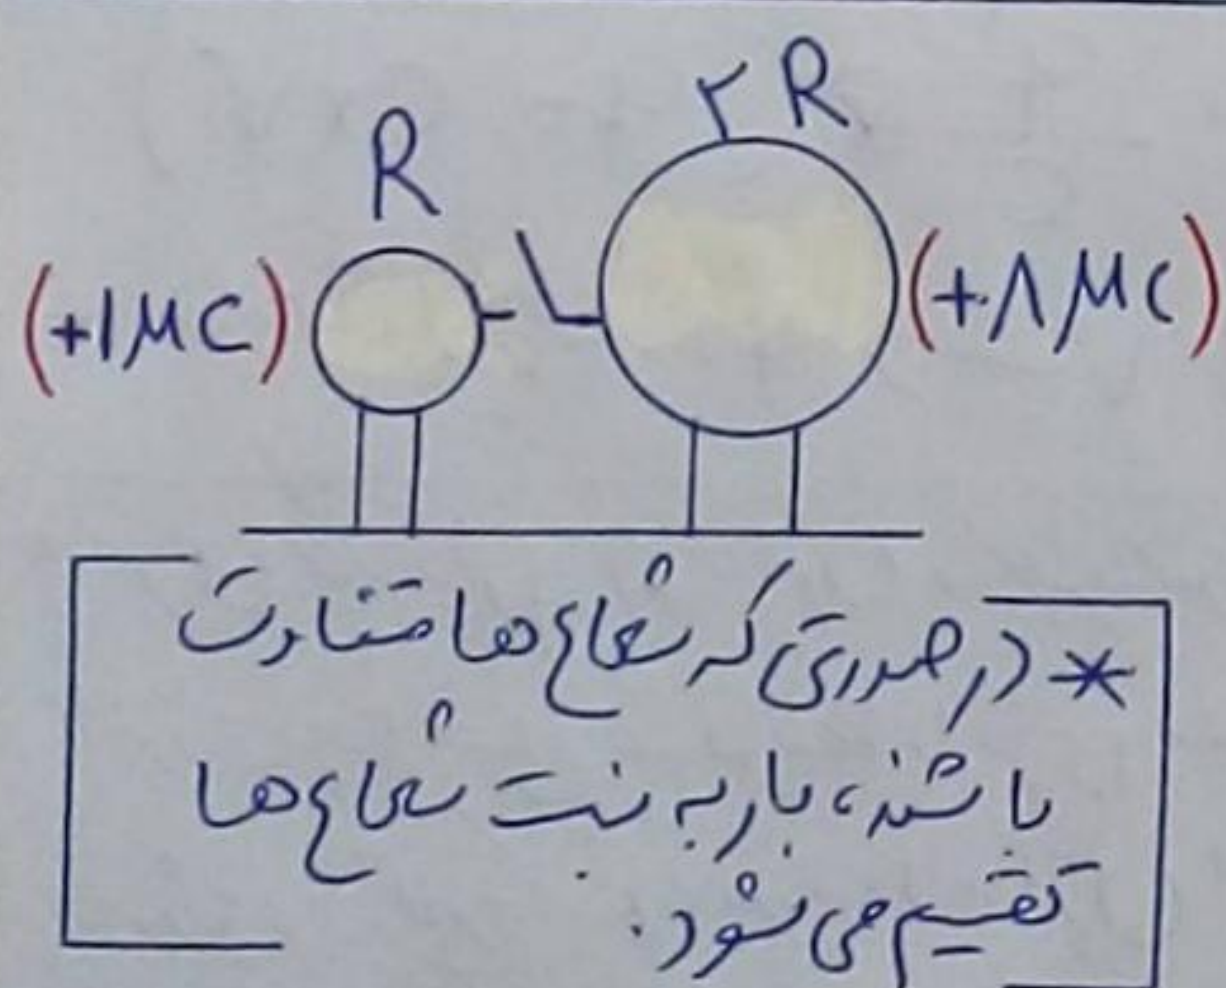 R
۲R
(+۱μC)
(+۸μC)
* در صورتی که شعاع ها متفاوت
باشند، بار به نسبت شعاع ها
تقسیم می شود.